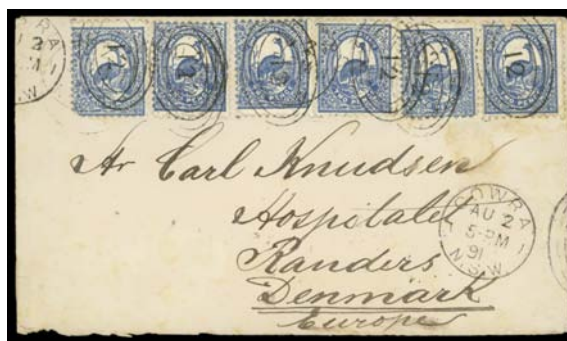 RA
2
M
.W
12
Hr Carl Knudsen
Hospitalet
Randers
Denmark
Europe
COWRA
AU 2
5-PM
91
N.S.W